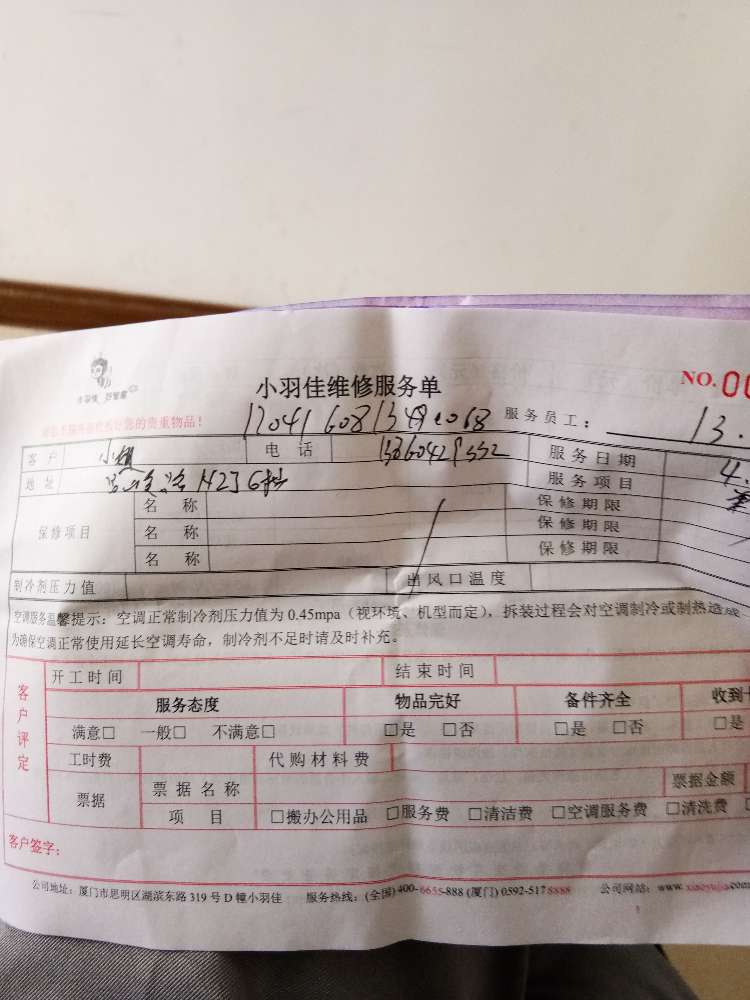 小羽佳 好管家
小羽佳维修服务单
NO.00
的贵重物品！
服务员工： 13.
客户 小 电话 服务日期 4.
地址 服务项目
保修项目 名称 保修期限
名称 保修期限
名称 保修期限
制冷剂压力值 出风口温度
空调服务温馨提示：空调正常制冷剂压力值为0.45mpa（视环境、机型而定），拆装过程会对空调制冷或制热造成
为确保空调正常使用延长空调寿命，制冷剂不足时请及时补充。
客户评定 开工时间 结束时间
服务态度 物品完好 备件齐全 收到
满意□ 一般□ 不满意□ □是 □否 □是 □否 □是
工时费 代购材料费
票据 票据名称 票据金额
项目 □搬办公用品 □服务费 □清洁费 □空调服务费 □清洗费
客户签字：
公司地址：厦门市思明区湖滨东路319号D幢小羽佳 服务热线：(全国)400-6655-888 (厦门)0592-5178888 公司网站：www.xiaoyujia.com